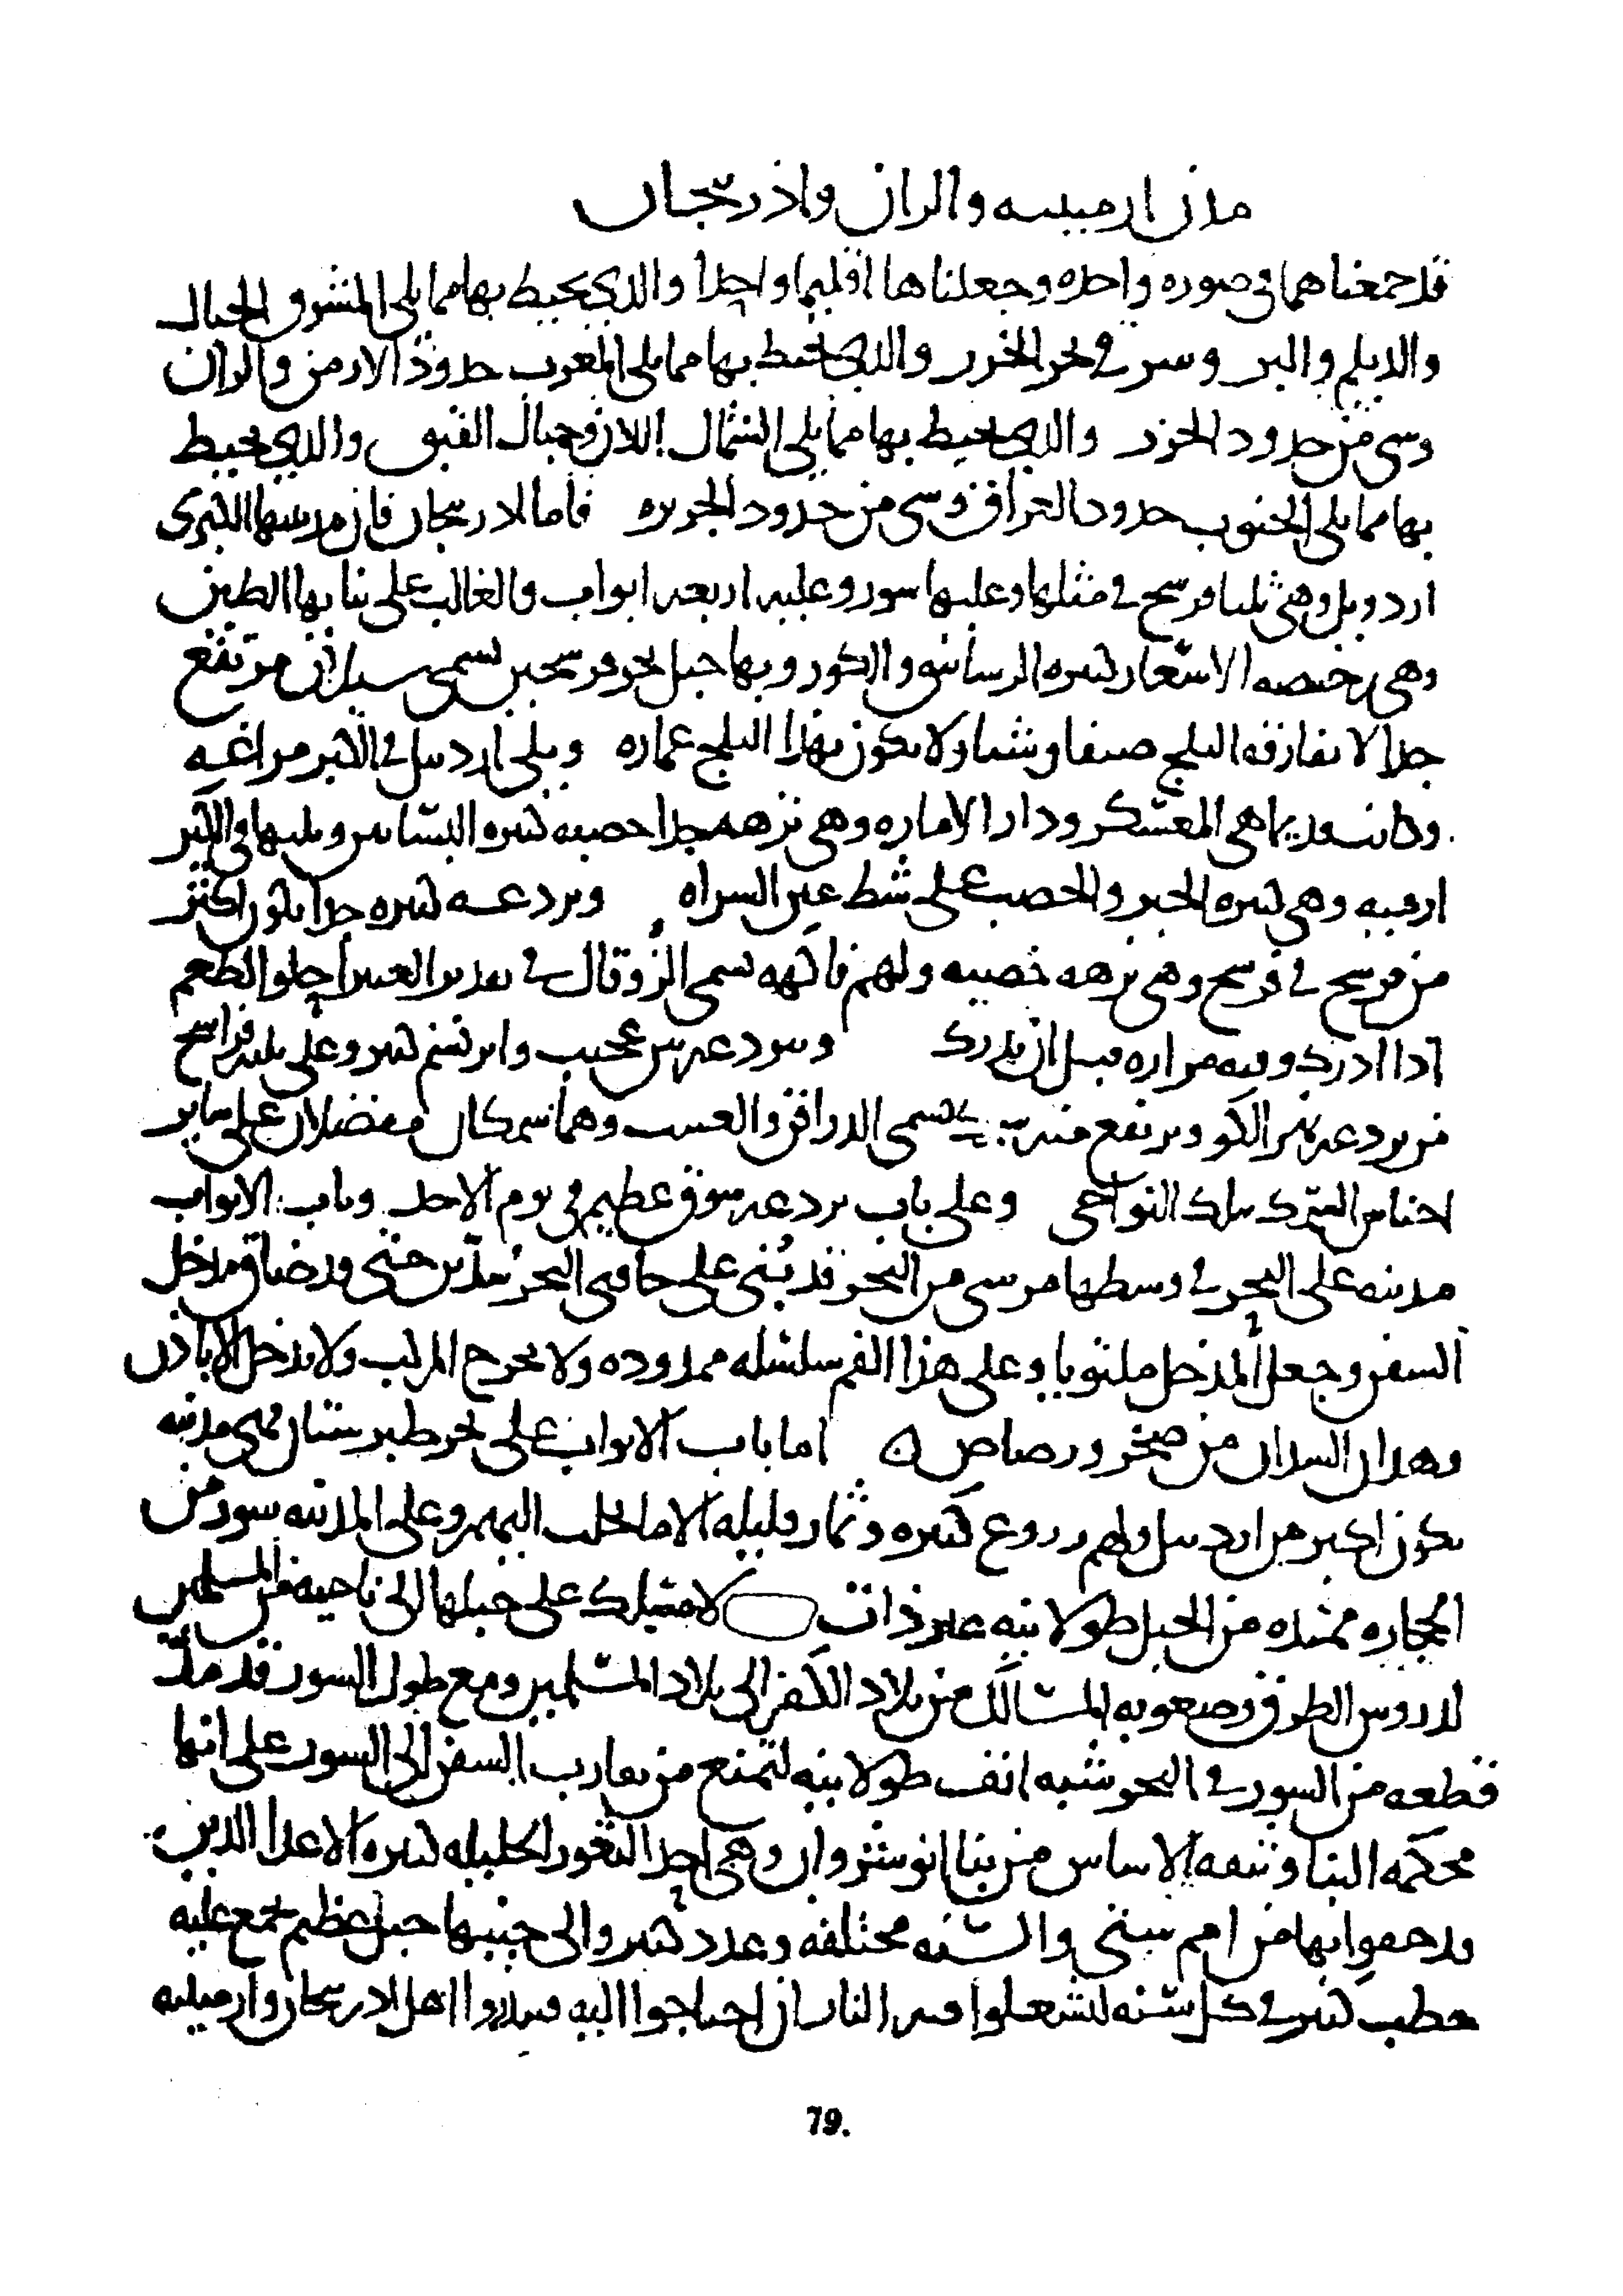 مدن ارمينيه والران واذربيجان
قد جمعناهما في صوره واحده وجعلناها اقليما واحدا والذي يحيط بها مما يلي المشرق الجبال
والديلم والبر وسى في بحر الخزر والذي يحيط بها مما يلي المغرب حدود الارمن والران
وسى من حدود الخزر والذي يحيط بها مما يلي الشمال اللان وجبال القبق والذي يحيط
بها مما يلي الجنوب حدود العراق وسى من حدود الجزيره فاما اذربيجان فان مدينتها الكبرى
اردويل وهي ثلثا فرسخ في مثلها وعليها سور وعليه اربعه ابواب والغالب على بنايها الطين
وهي رخيصه الاسعار كثيره الرساتيق والكور وبها جبل نحو فرسخين يسمى سبلان مرتفع
جدا لا يفارقه الثلج صيفا وشتا ولا يكون بهذا الثلج عماره ويلي اردبيل في الكبر مراغه
وكانت قديما هي المعسكر ودار الاماره وهي نزهه جدا خصبه كثيره البساتين ويليها في الكبر
ارميه وهي كثيره الخير والخصب على شط عين السراه وبردعه كثيره جدا يكون اكثر
من فرسخ في فرسخ وهي نزهه خصيبه ولهم فاكهه تسمى الزوقال في تقدير الغبيرا حلو الطعم
اذا ادرك وفيه مراره قبل ان يدرك وببردعه تين عجيب وابريسم كثير وعلى ثلثه فراسخ
من بردعه نهر الكر ويرتفع منه يسمى الدراقن والعسب وهما سمكان مفضلان على ساير
اجناس السمك بتلك النواحي وعلى باب بردعه سوق عظيم في يوم الاحد وباب الابواب
مدينه على البحر في وسطها مرسى من البحر قد بُنى على حافتي البحر سدين حتى قد ضاق مدخل
السفن وجعل المدخل ملتويا وعلى هذا الفم سلسله ممدوده ولا يخرج المركب ولا يدخل الا باذن
وهذان السدان من صخر ورصاص ن اما باب الابواب على بحر طبرستان فهي مدينه
تكون اكبر من اردبيل ولهم زروع كثيره وثمار قليله الا ما يجلب اليهم وعلى المدينه سور من
الحجاره ممتده من الجبل طولانيه غير ذات لا مسلك على جبلها الى ناحيه من المسلمين
لدروس الطرق وصعوبه المسالك من بلاد الكفر الى بلاد المسلمين ومع طول السور قد مد
قطعه من السور في البحر شبه انف طولانيه لتمنع من تقارب السفن الى السور على انها
محكمه البنا وثيقه الاساس من بنا انوشروان وهي احد الثغور الجليله كثيره الاعدا الذين
قد حفوا بها من امم شتى والسنه مختلفه وعدد كثير والى جنبها جبل عظيم يجمع عليه
حطب كثير في كل سنه ليشعلوا فيه النار ان احتاجوا اليه ينذروا اهل اذربيجان وارمينيه
79.